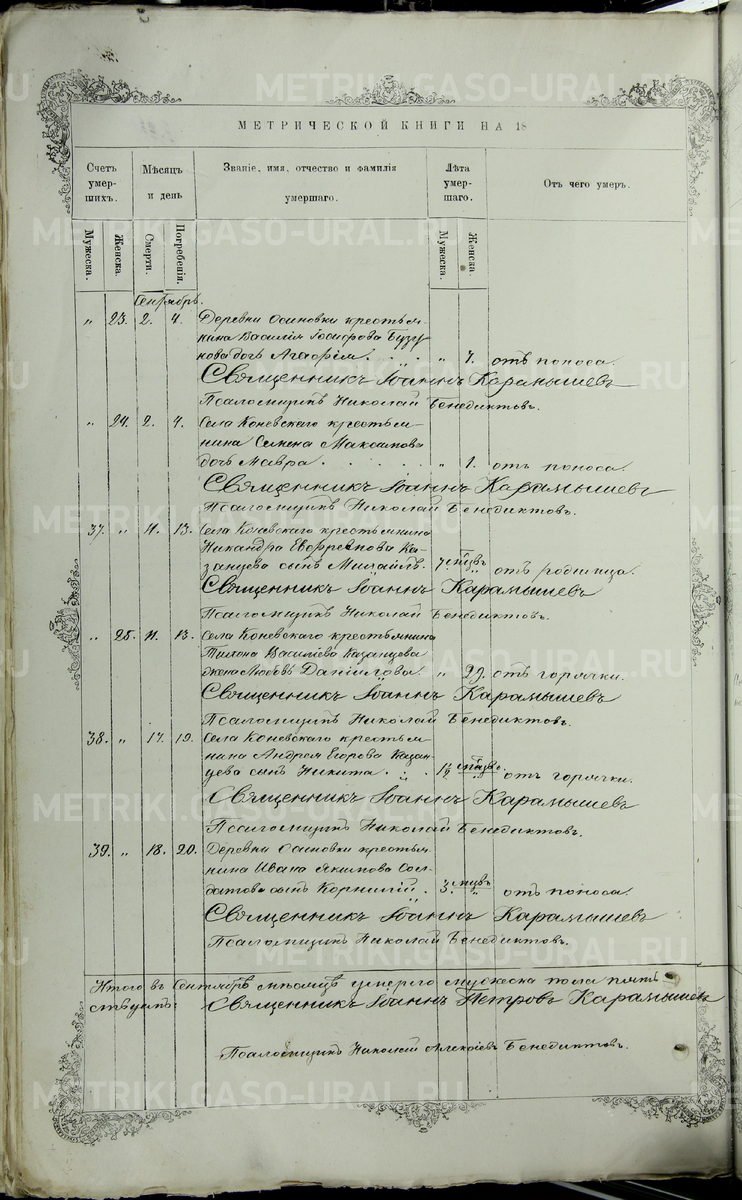 МЕТРИЧЕСКОЙ КНИГИ НА 18
Счетъ умершихъ. Мѣсяцъ и день Званіе, имя, отчество и фамилія умершаго. Лѣта умершаго. Отъ чего умеръ.
Мужеска. Женска. Смерти. Погребенія. Мужеска. Женска.
Сентябрь.
„ 23. 2. 4. Деревни Осиновки крестья-
нина Василія Іосифова Бузу-
нова дочь Агафія. „ 7. отъ поноса.
Священникъ Іоаннъ Карамышевъ
Псаломщикъ Николай Бенедиктовъ.
„ 24. 2. 4. Села Коневскаго крестья-
нина Семена Максимова
дочь Мавра. „ 1. отъ поноса.
Священникъ Іоаннъ Карамышевъ
Псаломщикъ Николай Бенедиктовъ.
37. „ 11. 13. Села Коневскаго крестьянина
Никандра Евфремова Ка-
занцева сынъ Михаилъ. 7 „ отъ родимца.
Священникъ Іоаннъ Карамышевъ
Псаломщикъ Николай Бенедиктовъ.
„ 25. 11. 13. Села Коневскаго крестьянина
Тихона Васильева Казанцева
жена Любовь Даніилова. „ 29. отъ горячки.
Священникъ Іоаннъ Карамышевъ
Псаломщикъ Николай Бенедиктовъ.
38. „ 17. 19. Села Коневскаго крестья-
нина Андрея Егорова Казан-
цева сынъ Никита. 1½ „ отъ горячки.
Священникъ Іоаннъ Карамышевъ
Псаломщикъ Николай Бенедиктовъ.
39. „ 18. 20. Деревни Осиновки крестья-
нина Ивана Якимова Сол-
датова сынъ Корнилій. 3. „ отъ поноса.
Священникъ Іоаннъ Карамышевъ
Псаломщикъ Николай Бенедиктовъ.
Итого въ Сентябрѣ мѣсяцѣ умерло мужеска пола пять
Священникъ Іоаннъ Петровъ Карамышевъ
Псаломщикъ Николай Алексіевъ Бенедиктовъ.
METRIKI.GASO-URAL.RU